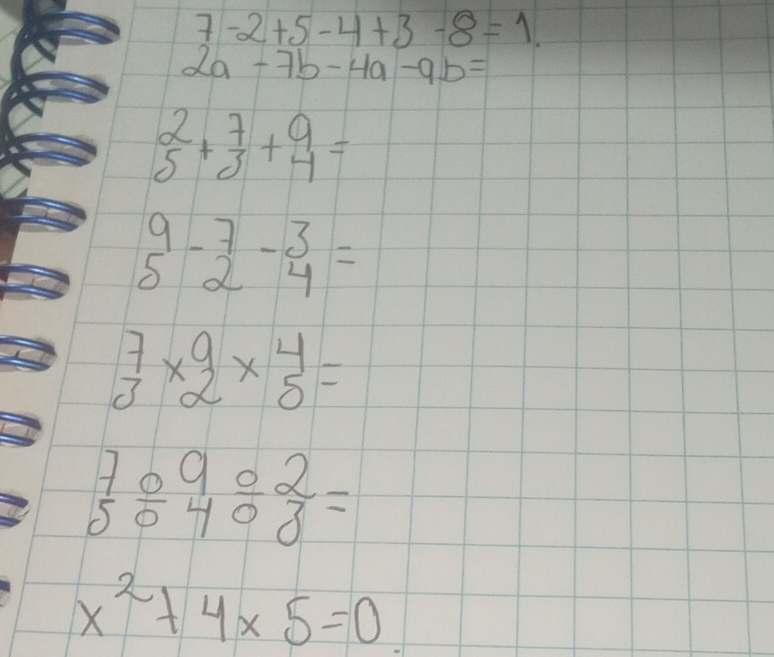 7-2+5-4+3-8=1.
2a-7b-4a-9b=
2/5+7/3+9/4=
9/5-7/2-3/4=
7/3×9/2×4/5=
7/5÷9/4÷2/3=
x²+4x5=0.